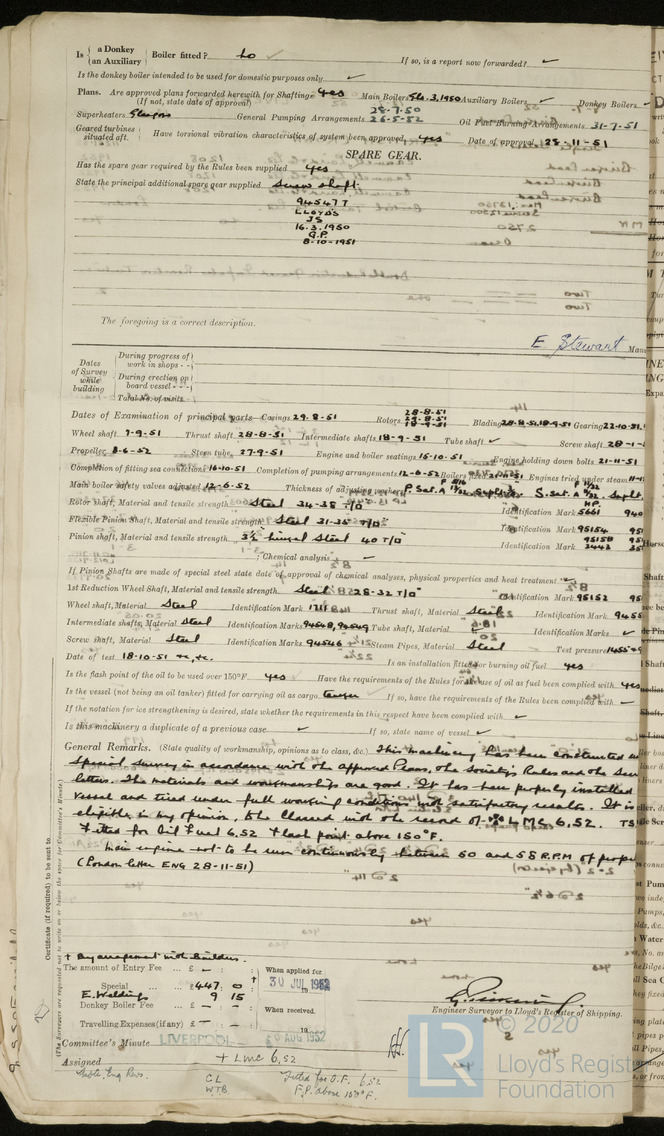 Is { a Donkey / an Auxiliary } Boiler fitted? No ✓ If so, is a report now forwarded? ✓
Is the donkey boiler intended to be used for domestic purposes only ✓
Plans. Are approved plans forwarded herewith for Shafting yes Main Boilers Gls. 3.1950 Auxiliary Boilers ✓ Donkey Boilers
(If not, state date of approval)
Superheaters Glasgow General Pumping Arrangements 28-7-50 26-5-52 Oil Fuel Burning Arrangements 31-7-51
Geared turbines situated aft. Have torsional vibration characteristics of system been approved yes Date of approval 28-11-51
SPARE GEAR.
Has the spare gear required by the Rules been supplied yes
State the principal additional spare gear supplied Screw shaft.
94547T
LLOYD'S
JS
16.3.1950
G.P.
8-10-1951
The foregoing is a correct description.
E Stewart
Dates of Survey while building
During progress of work in shops - -
During erection on board vessel - - -
Total No. of visits
Dates of Examination of principal parts—Casings 29.8-51 Rotors 28-8-51 29-8-51 18-9-51 Blading 28-8-51 18-9-51 Gearing 22-10-51
Wheel shaft 7-9-51 Thrust shaft 28-8-51 Intermediate shafts 18-9-51 Tube shaft ✓ Screw shaft 28-1-
Propeller 8-6-52 Stern tube 27-9-51 Engine and boiler seatings 16-10-51 Engine holding down bolts 21-11-51
Completion of fitting sea connections 16-10-51 Completion of pumping arrangements 12-6-52 Boilers Engines tried under steam
Main boiler safety valves adjusted 12-6-52 Thickness of adjusting washers
Rotor shaft, Material and tensile strength Steel 34-38 T/□" Identification Mark 5661
Flexible Pinion Shaft, Material and tensile strength Steel 31-35 T/□" Identification Mark 95154
Pinion shaft, Material and tensile strength 3½ % nickel Steel 40 T/□" Identification Mark 3442
; Chemical analysis ✓
If Pinion Shafts are made of special steel state date of approval of chemical analyses, physical properties and heat treatment ✓
1st Reduction Wheel Shaft, Material and tensile strength Steel 28-32 T/□" Identification Mark 95152
Wheel shaft, Material Steel Identification Mark 1711 Thrust shaft, Material Steel Identification Mark
Intermediate shafts, Material Steel Identification Marks 94548, 94549 Tube shaft, Material Identification Marks ✓
Screw shaft, Material Steel Identification Marks 94546 Steam Pipes, Material Steel Test pressure
Date of test 18-10-51 etc, etc. Is an installation fitted for burning oil fuel yes
Is the flash point of the oil to be used over 150°F. yes Have the requirements of the Rules for the use of oil as fuel been complied with yes
Is the vessel (not being an oil tanker) fitted for carrying oil as cargo tanker If so, have the requirements of the Rules been complied with ✓
If the notation for ice strengthening is desired, state whether the requirements in this respect have been complied with ✓
Is this machinery a duplicate of a previous case ✓ If so, state name of vessel ✓
General Remarks. (State quality of workmanship, opinions as to class, &c.) This machinery has been constructed
Special survey in accordance with the approved Plans, the Society's Rules and the
letters. The materials and workmanship are good. It has been properly installed
vessel and tried under full working conditions with satisfactory results. It is
eligible, in my opinion, to be classed with the record of ✠ LMC 6,52. TS
Fitted for Oil Fuel 6,52 Flash point above 150°F.
Main engine not to be run continuously between 50 and 58 R.P.M. of
(London letter ENG 28-11-51)
Certificate (if required) to be sent to
(The Surveyors are requested not to write on or below the space for Committee's Minute.)
+ By arrangement with Builders.
The amount of Entry Fee ... £ — : When applied for
Special ... £447 : 0 30 JUL 1952
E. Weldings 9 15
Donkey Boiler Fee ... £ — : — When received.
Travelling Expenses (if any) £ — : 19
Engineer Surveyor to Lloyd's Register of Shipping.
Committee's Minute LIVERPOOL AUG 1952
Assigned + LMC 6,52
CL Fitted for O.F. 6.52
W.T.B. F.P. above 150°F.
© 2020
LR
Lloyd's Register
Foundation